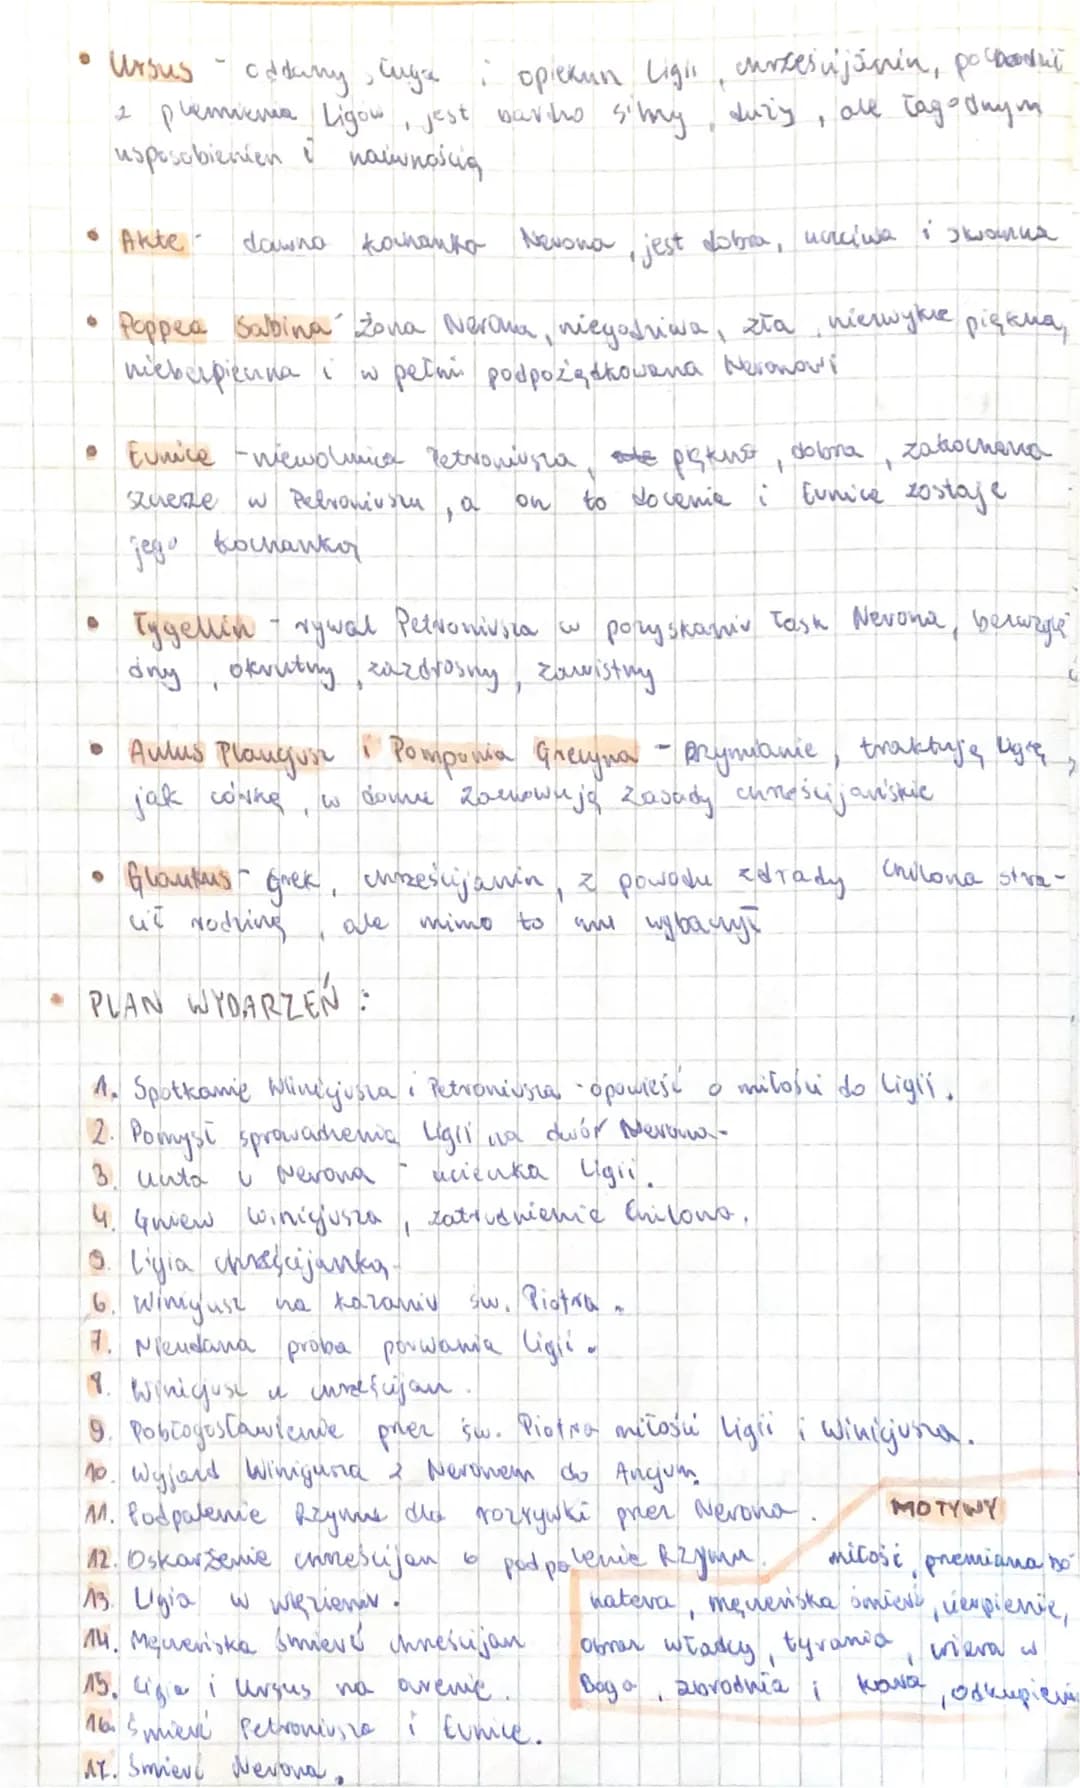 • Ursus - oddany sługa i opiekun Ligii, chrześcijanin, pochodził
z plemienia Ligów, jest bardzo silny, duży, ale łagodnym
usposobieniem i naiwnością
• Akte - dawna kochanka Nerona, jest dobra, uczciwa i skromna
• Poppea Sabina - żona Nerona, niegodziwa, zła, niezwykle piękna,
niebezpieczna i w pełni podpożądkowana Neronowi
• Eunice - niewolnica Petroniusza, piękna, dobra, zakochana
szczerze w Petroniuszu, a on to docenia i Eunice zostaje
jego kochanką
• Tygellin - rywal Petroniusza w pozyskaniu łask Nerona, bezwzglę
dny, okrutny, zazdrosny, zawistny
• Aulus Plaucjusz i Pomponia Grecyna - Rzymianie, traktują Ligię,
jak córkę, w domu zachowują zasady chrześcijańskie
• Glaukus - Grek, chrześcijanin, z powodu zdrady Chilona stra-
cił rodzinę, ale mimo to mu wybaczył
• PLAN WYDARZEŃ:
1. Spotkanie Winicjusza i Petroniusza - opowieść o miłości do Ligii.
2. Pomysł sprowadzenia Ligii na dwór Nerona.
3. Uczta u Nerona - ucieczka Ligii.
4. Gniew Winicjusza, zatrudnienie Chilona.
5. Ligia chrześcijanką.
6. Winicjusz na kazaniu św. Piotra.
7. Nieudana próba porwania Ligii.
8. Winicjusz u chrześcijan.
9. Pobłogosławienie przez św. Piotra miłości Ligii i Winicjusza.
10. Wyjazd Winicjusza z Neronem do Ancjum.
11. Podpalenie Rzymu dla rozrywki przez Nerona.
12. Oskarżenie chrześcijan o podpalenie Rzymu.
13. Ligia w więzieniu.
14. Męczeńska śmierć chrześcijan
15. Ligia i Ursus na arenie.
16. Śmierć Petroniusza i Eunice.
17. Śmierć Nerona.
MOTYWY
miłość, przemiana bo
hatera, męczeńska śmierć, cierpienie,
obraz władcy, tyrania, wiara w
Boga, zbrodnia i kara, odkupienie